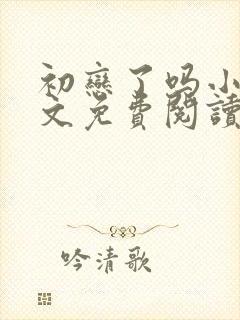 初戀了吗小
文免費閱讀
吟清歌